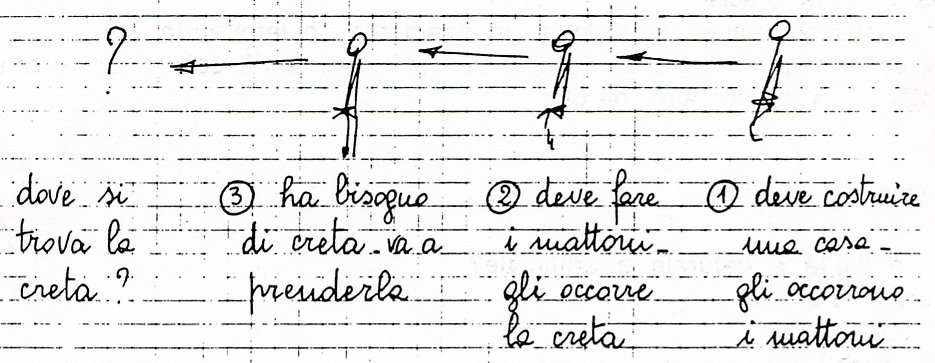 ?
dove si
trova la
creta?
③ ha bisogno
di creta - va a
prenderla
② deve fare
i mattoni -
gli occorre
la creta
① deve costruire
una casa -
gli occorrono
i mattoni